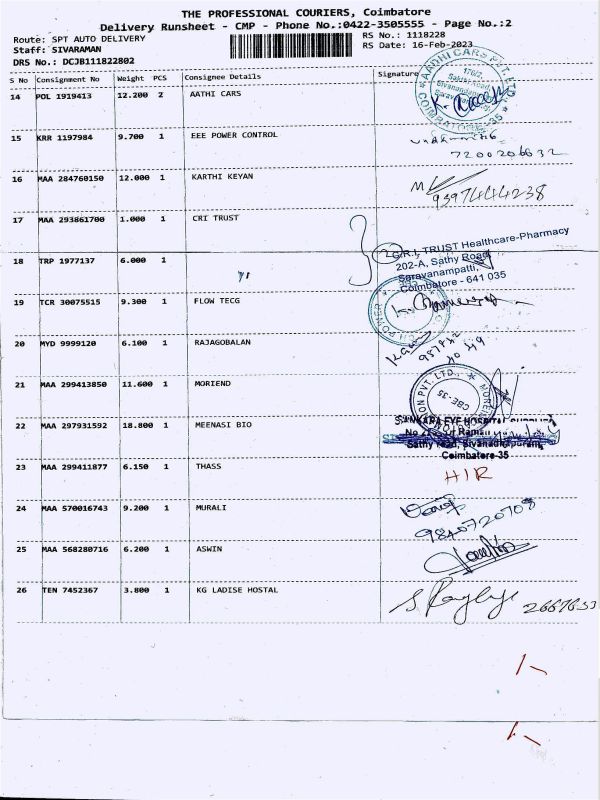 THE PROFESSIONAL COURIERS, Coimbatore
Delivery Runsheet - CMP - Phone No.:0422-3505555 - Page No.:2
Route: SPT AUTO DELIVERY
RS No.: 1118228
Staff: SIVARAMAN
RS Date: 16-Feb-2023
DRS No.: DCJB111822802
S No Consignment No Weight PCS Consignee Details Signature
14 POL 1919413 12.200 2 AATHI CARS
AADHI CARS PVT. LTD.
176/2,
COIMBATORE-35
15 KRR 1197984 9.700 1 EEE POWER CONTROL
7200206632
16 MAA 284760150 12.000 1 KARTHI KEYAN
9397444238
17 MAA 293861700 1.000 1 CRI TRUST
C.R.I. TRUST Healthcare-Pharmacy
202-A, Sathy Road
Saravanampatti,
Coimbatore - 641 035
18 TRP 1977137 6.000 1
19 TCR 30075515 9.300 1 FLOW TECG
20 MYD 9999120 6.100 1 RAJAGOBALAN
21 MAA 299413850 11.600 1 MORIEND
CBE-35
22 MAA 297931592 18.800 1 MEENASI BIO
SANKARA EYE HOSPITAL
Sathy road, Sivanandapuram,
Coimbatore-35
23 MAA 299411877 6.150 1 THASS
HIR
24 MAA 570016743 9.200 1 MURALI
9840720708
25 MAA 568280716 6.200 1 ASWIN
26 TEN 7452367 3.800 1 KG LADISE HOSTAL